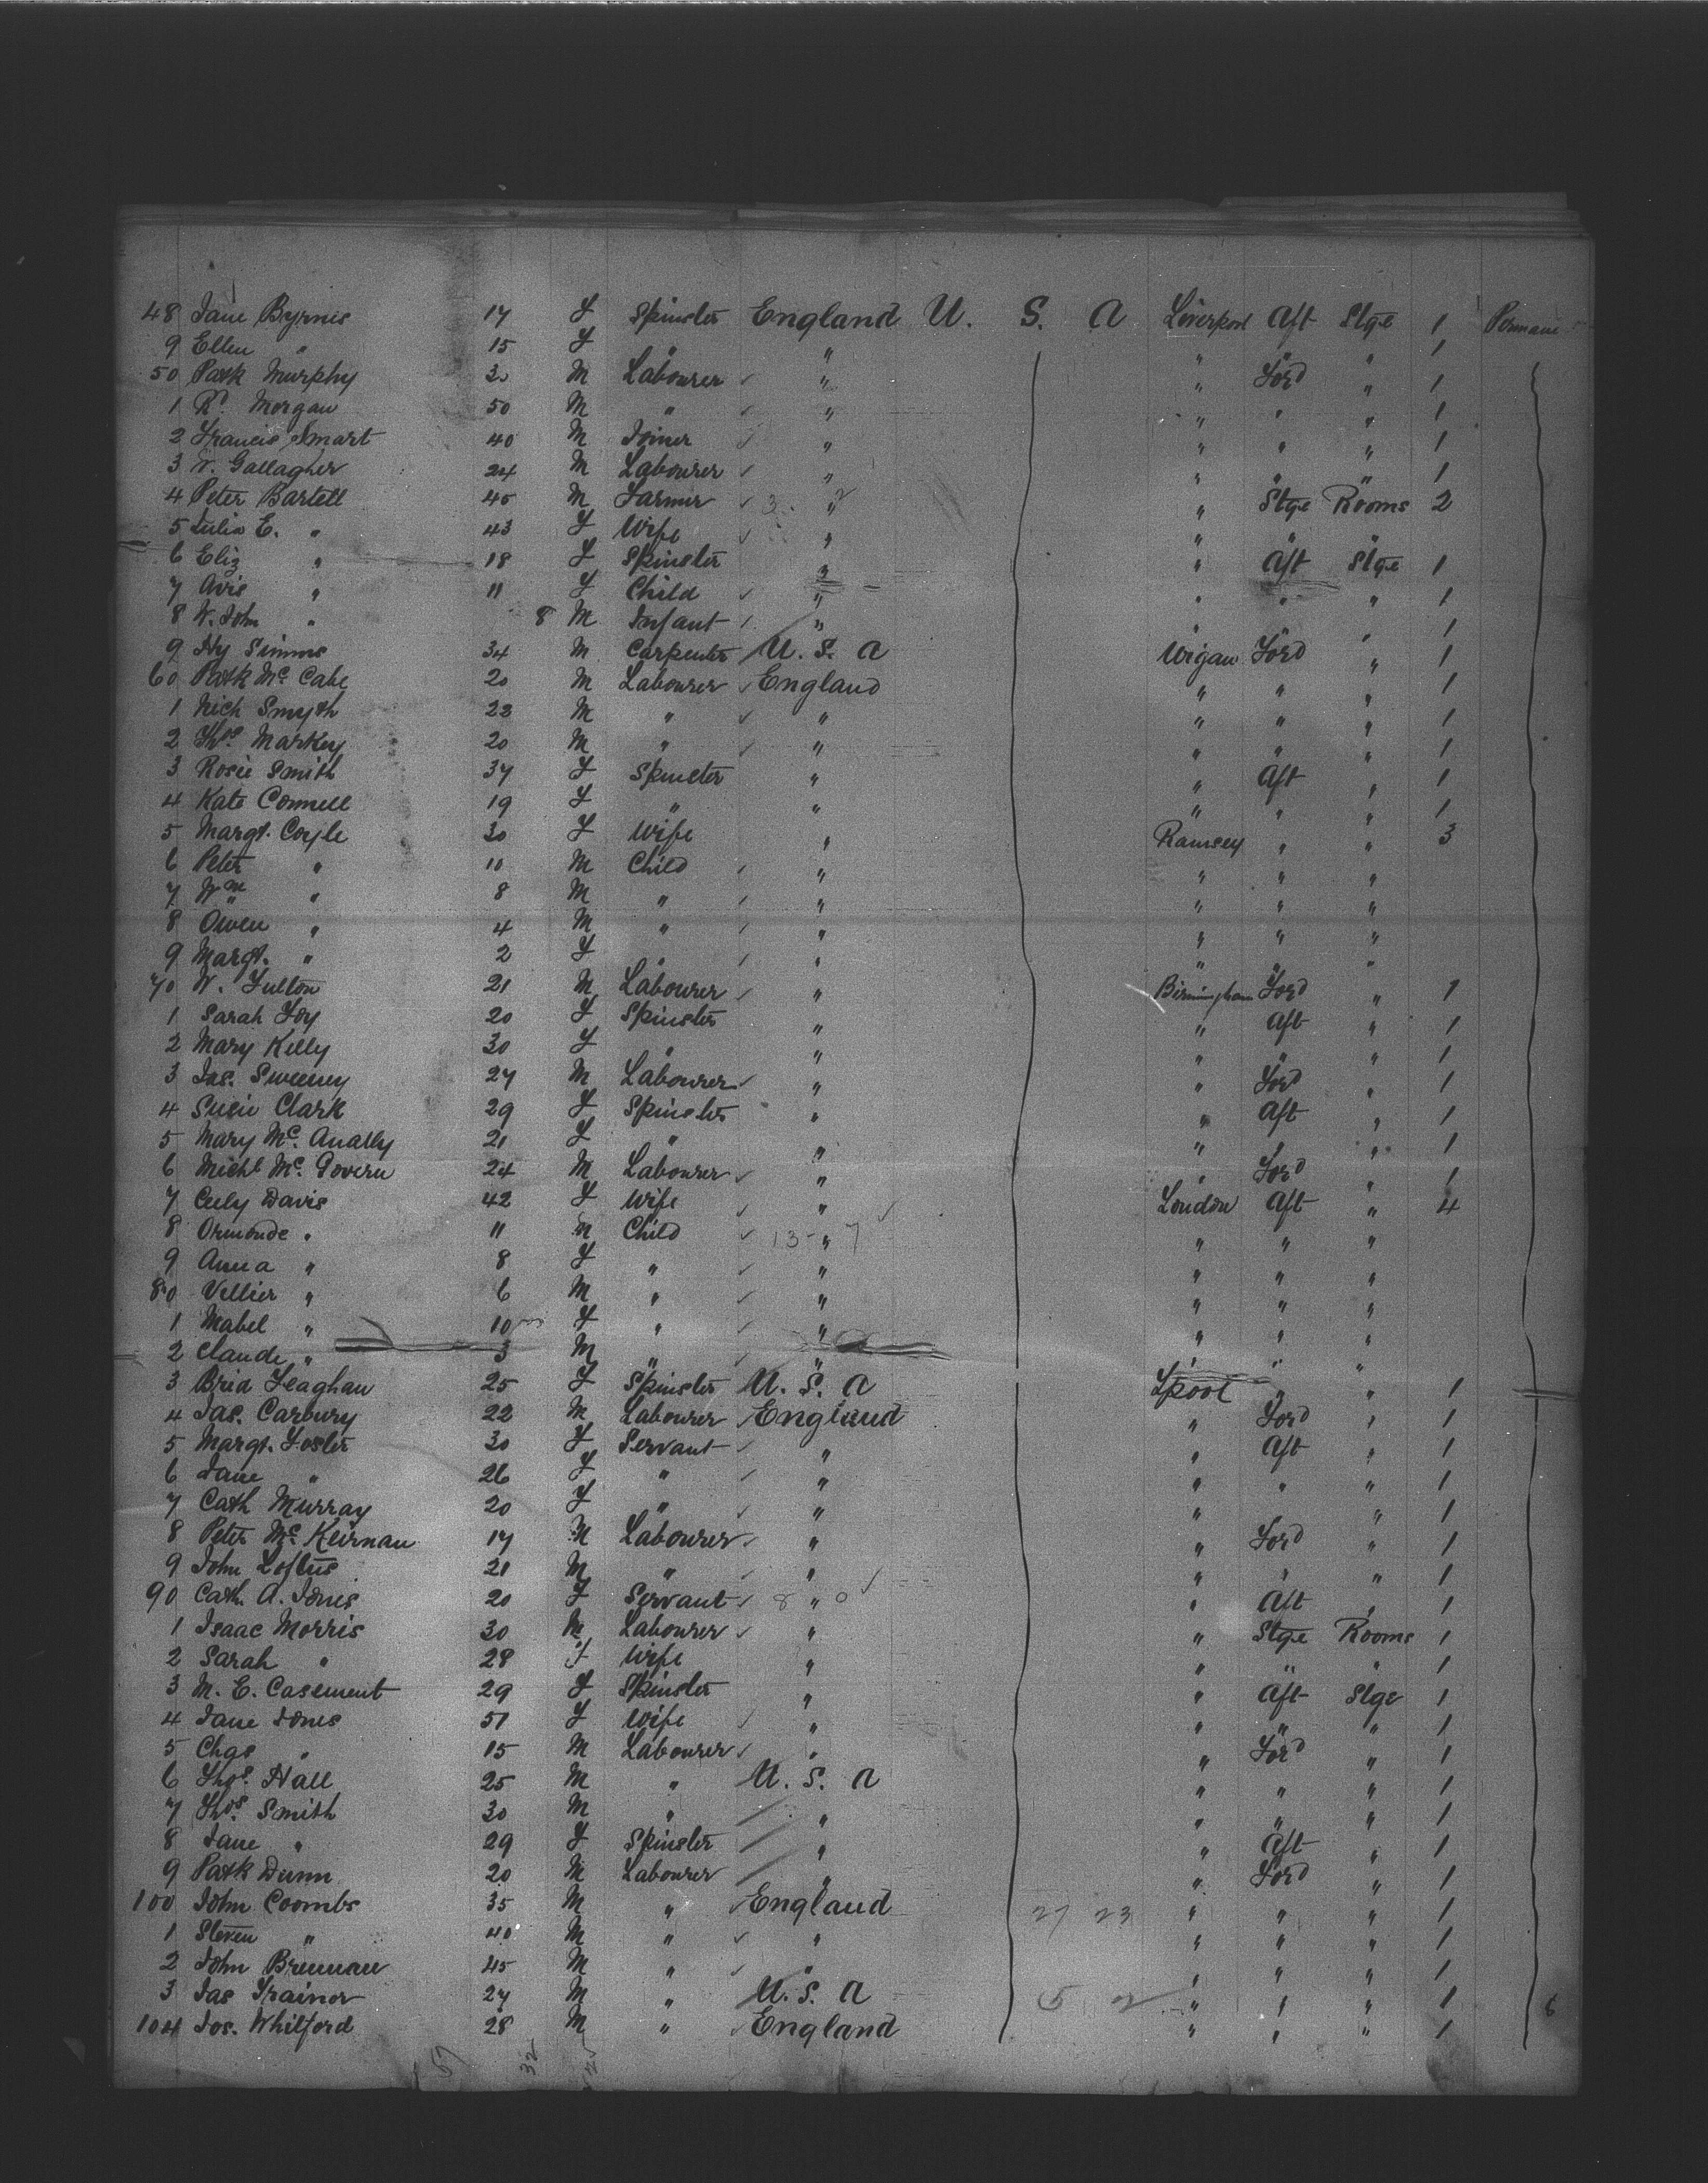 48 Jane Byrnes 17 F Spinster England U. S. A Liverpool Aft Stge 1 Permane
9 Ellen " 15 F " " " " " 1
50 Patk Murphy 30 M Labourer " " Ford " 1
1 Rd. Morgan 50 M " " " " " 1
2 Francis Smart 40 M Joiner " " " " 1
3 W. Gallagher 24 M Labourer " " " " 1
4 Peter Bartell 45 M Farmer " " Stge Rooms 2
5 Julia E. " 43 F Wife " " " "
6 Eliz " 18 F Spinster " " Aft Stge 1
7 Avis " 11 F Child " " " " 1
8 W. John " 8 M Infant " " " " 1
9 Hy Simms 34 M Carpenter U. S. A Wigan Ford " 1
60 Patk Mc Cabe 20 M Labourer England " " " 1
1 Nich Smyth 22 M " " " " " 1
2 Thos. Markey 20 M " " " " " 1
3 Rosie Smith 37 F Spinster " " Aft " 1
4 Kate Connell 19 F " " " " " 1
5 Margt. Coyle 30 F Wife " Ramsey " " 3
6 Peter " 10 M Child " " " "
7 Wm " 8 M " " " " "
8 Owen " 4 M " " " " "
9 Margt. " 2 F " " " " "
70 W. Fulton 21 M Labourer " Birmingham Ford " 1
1 Sarah Foy 20 F Spinster " " Aft " 1
2 Mary Kelly 30 F " " " " " 1
3 Jas. Sweeney 27 M Labourer " " Ford " 1
4 Susie Clark 29 F Spinster " " Aft " 1
5 Mary Mc. Anally 21 F " " " " " 1
6 Michl Mc. Govern 24 M Labourer " " Ford " 1
7 Cely Davis 42 F Wife " London Aft " 4
8 Ormonde " 11 M Child 13 - " 7 " " "
9 Anna " 8 F " " " " "
80 Vellier " 6 M " " " " "
1 Mabel " 10 F " " " " "
2 Claude " 3 M " " " " "
3 Brid Feaghan 25 F Spinster U. S. A Lpool " " 1
4 Jas. Carbury 22 M Labourer England " Ford " 1
5 Margt. Foster 30 F Servant " " Aft " 1
6 Jane " 26 F " " " " " 1
7 Cath Murray 20 F " " " " " 1
8 Peter Mc. Keirnan 17 M Labourer " " Ford " 1
9 John Loftus 21 M " " " " " 1
90 Cath. A. Jones 20 F Servant 8 " 0 " Aft " 1
1 Isaac Morris 30 M Labourer " " Stge Rooms 1
2 Sarah " 28 F Wife " " " " 1
3 M. E. Casement 29 F Spinster " " Aft Stge 1
4 Jane Jones 51 F Wife " " " " 1
5 Chas " 15 M Labourer " " Ford " 1
6 Thos. Hall 25 M " U. S. A " " " 1
7 Thos. Smith 30 M " " " " " 1
8 Jane " 29 F Spinster " " Aft " 1
9 Patk Dunn 20 M Labourer " " Ford " 1
100 John Coombs 35 M " England 27 23 " " " 1
1 Steven " 40 M " " " " " 1
2 John Brennan 45 M " " " " " 1
3 Jas Trainor 27 M " U. S. A 5 2 " " " 1 6
104 Jos. Whilford 28 M " England " " " 1
57 32 25